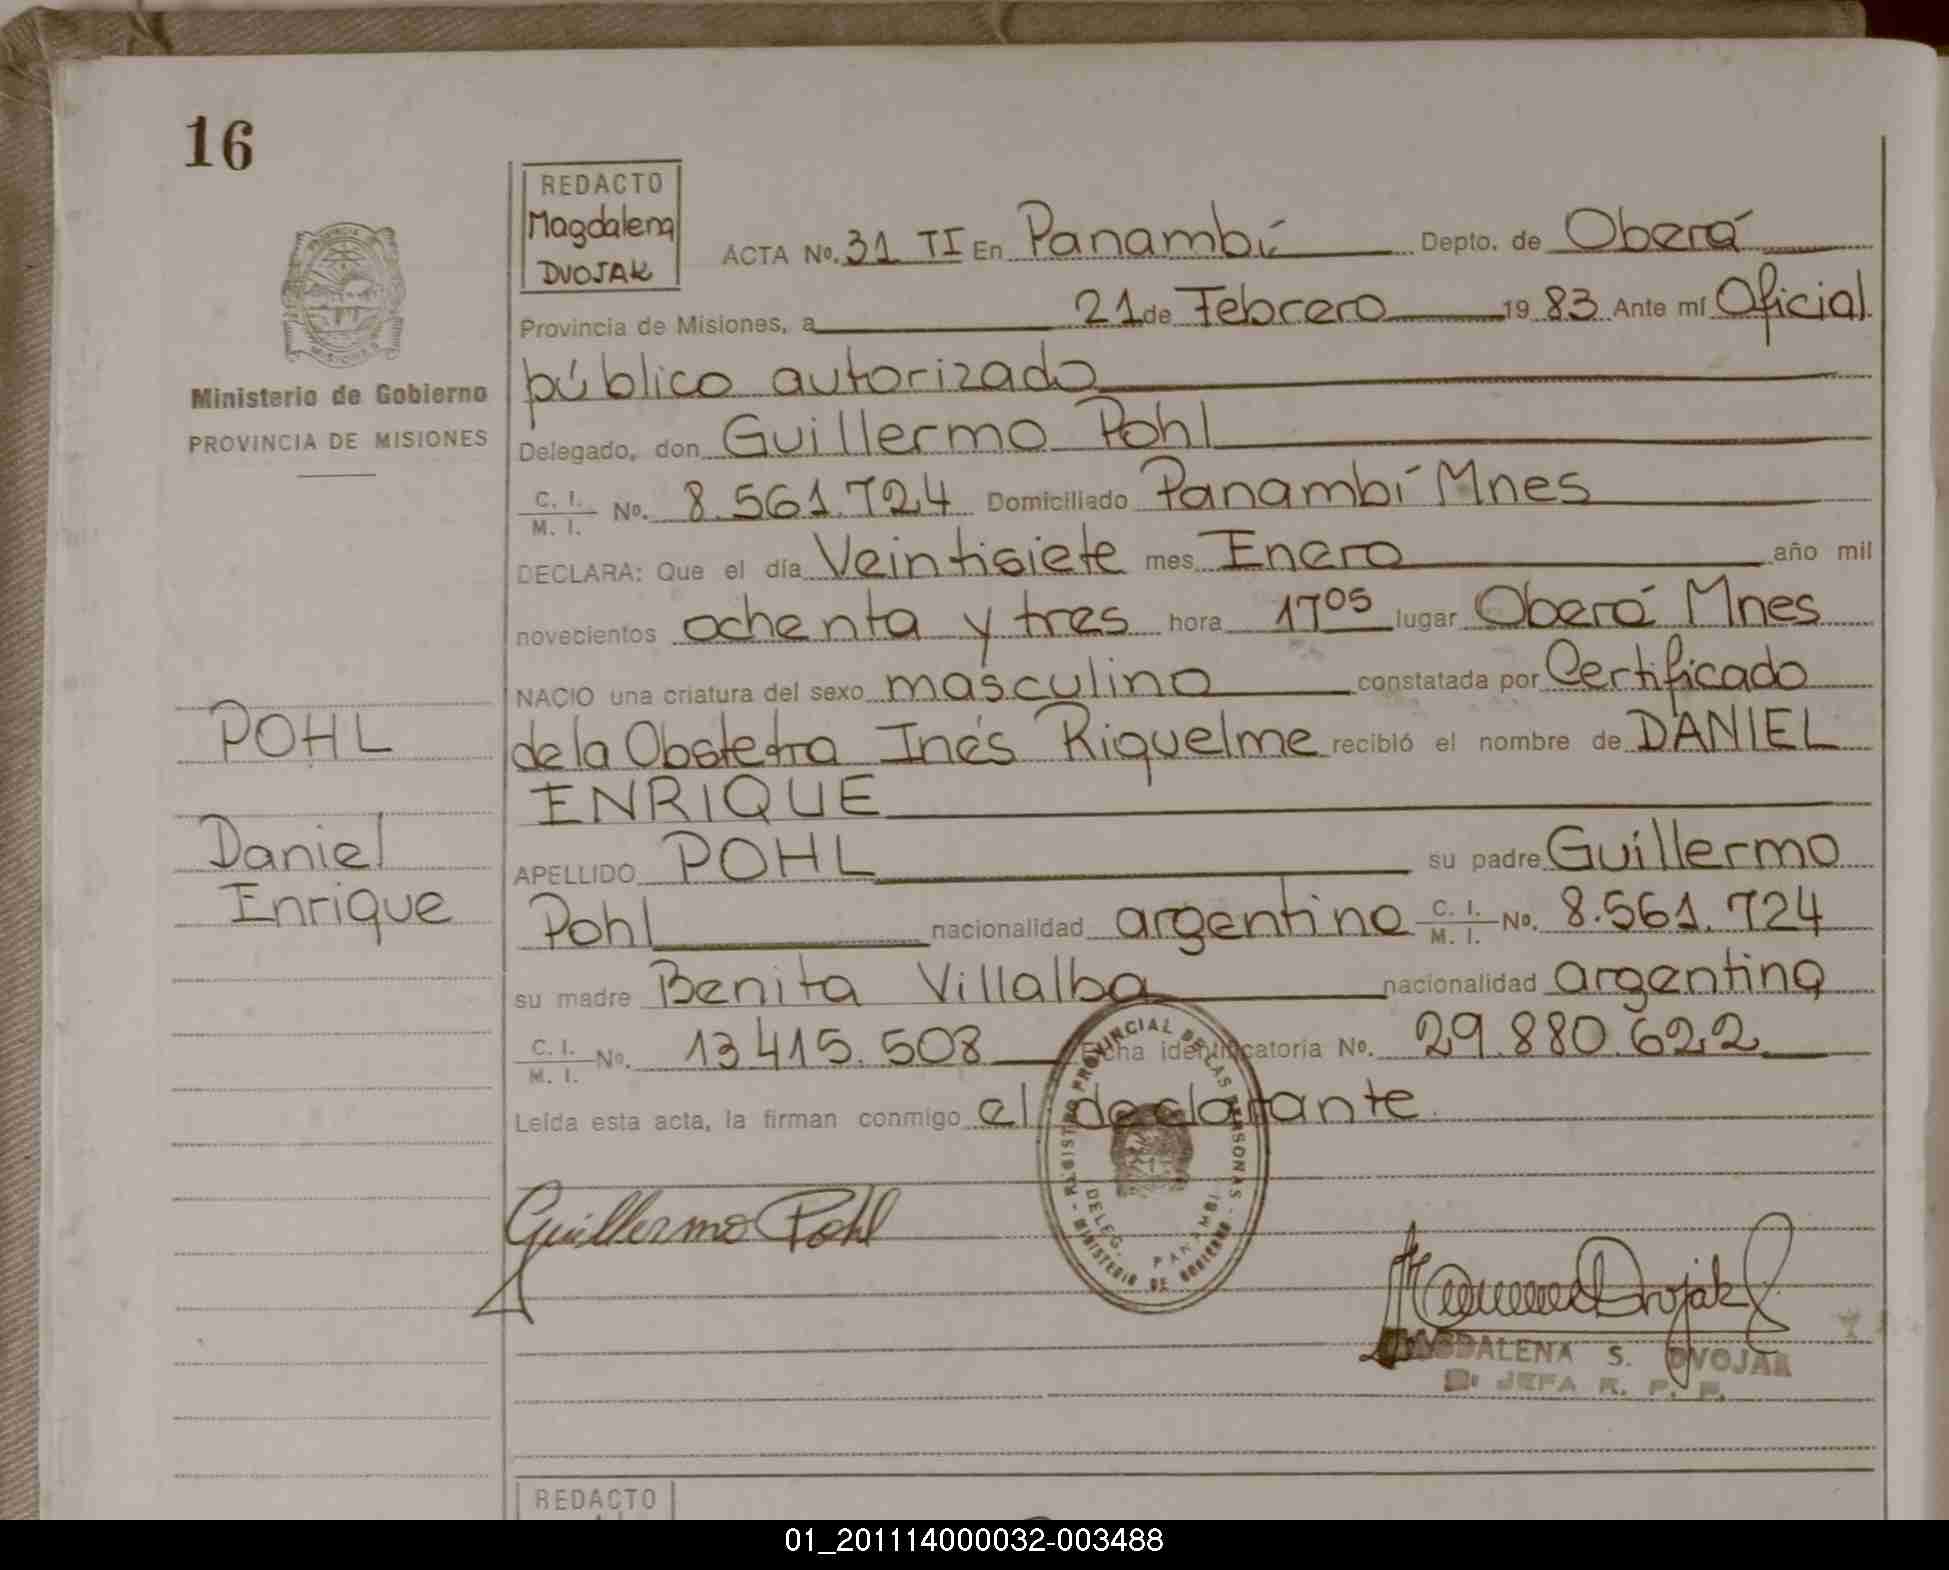 16
REDACTO
Magdalena
DVOJAK
ACTA No. 31 TI En Panambí Depto. de Oberá
Provincia de Misiones, a 21 de Febrero 19 83 Ante mí Oficial
público autorizado
Delegado, don Guillermo Pohl
C. I.
M. I. No. 8.561.724 Domiciliado Panambí Mnes
DECLARA: Que el día Veintisiete mes Enero año mil
novecientos ochenta y tres hora 17 05 lugar Oberá Mnes
NACIO una criatura del sexo masculino constatada por Certificado
de la Obstetra Inés Riquelme recibió el nombre de DANIEL
ENRIQUE
APELLIDO POHL su padre Guillermo
Pohl nacionalidad argentino C. I.
M. I. No. 8.561.724
su madre Benita Villalba nacionalidad argentina
C. I.
M. I. No. 13 415.508 Ficha identificatoria No. 29.880.622
Leída esta acta, la firman conmigo el declarante
Guillermo Pohl
REGISTRO PROVINCIAL DE LAS PERSONAS - MINISTERIO DE GOBIERNO -
DELEG. PANAMBI
Dvojak
MAGDALENA S. DVOJAK
JEFA R. P. P.
PROVINCIA DE
MISIONES
Ministerio de Gobierno
PROVINCIA DE MISIONES
POHL
Daniel
Enrique
REDACTO
01_201114000032-003488